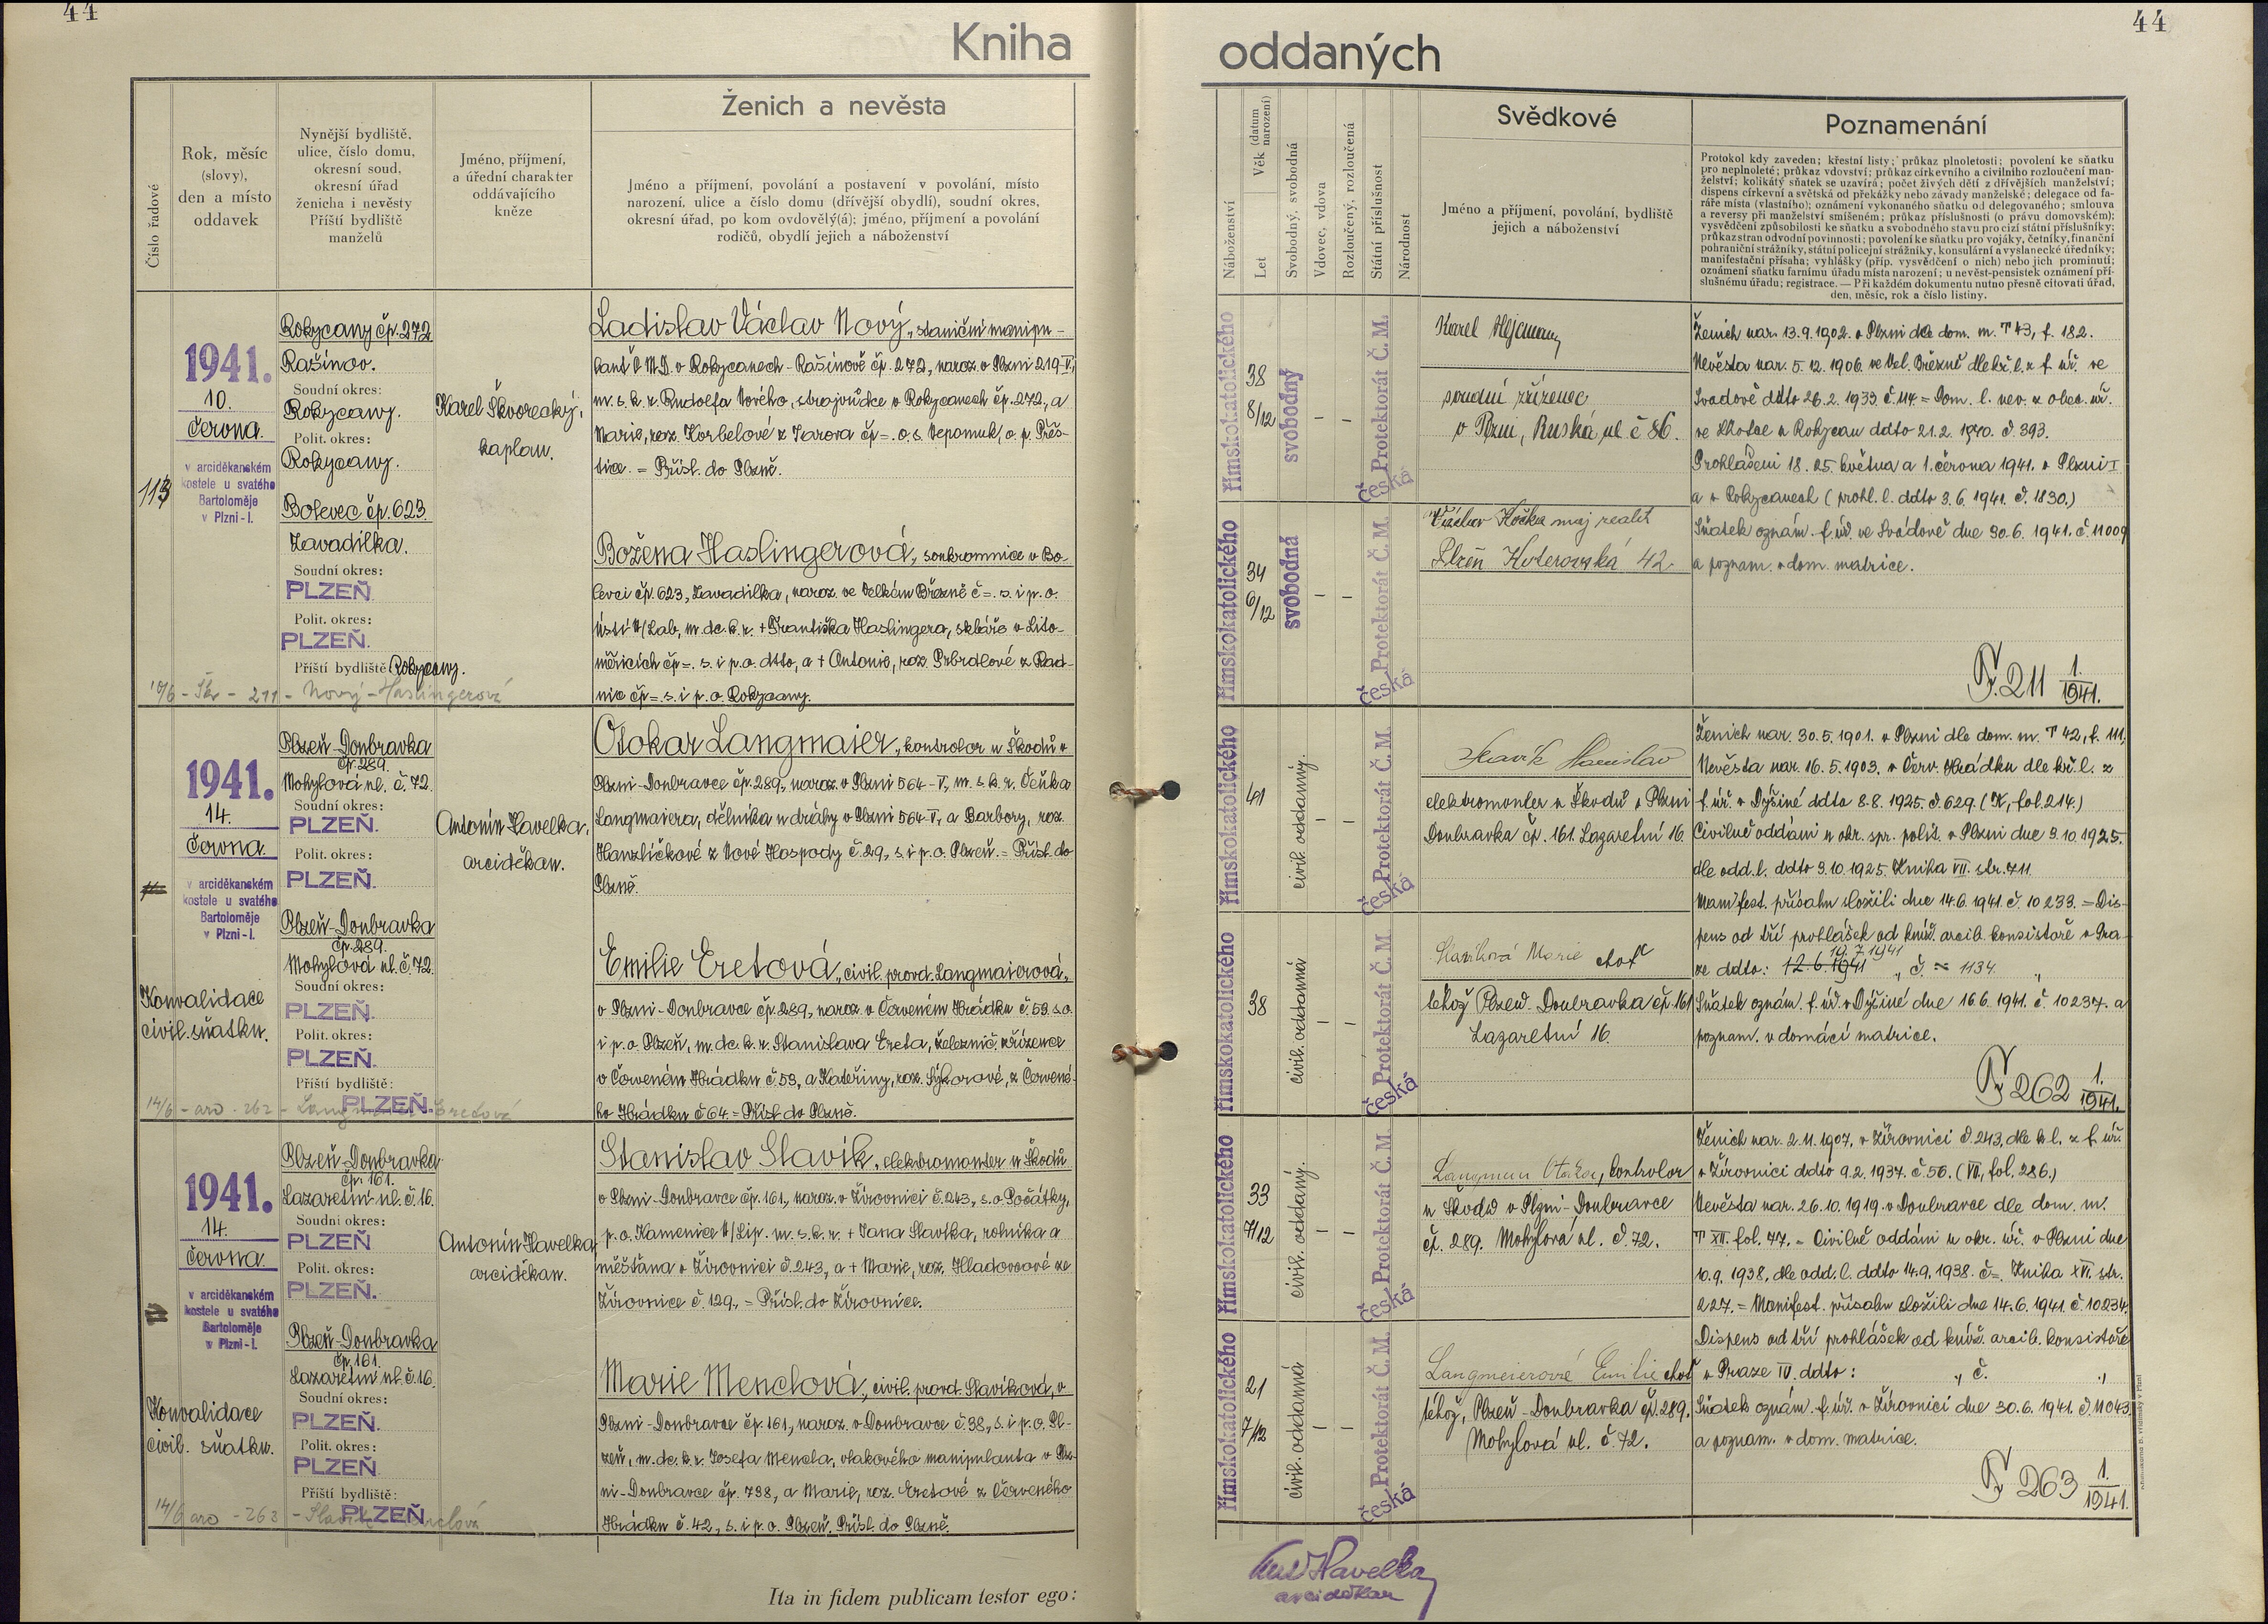 44
44
Kniha
oddaných
Číslo řadové
Rok, měsíc
(slovy),
den a místo
oddavek
Nynější bydliště,
ulice, číslo domu,
okresní soud,
okresní úřad
ženicha i nevěsty
Příští bydliště
manželů
Jméno, příjmení,
a úřední charakter
oddávajícího
kněze
Ženich a nevěsta
Jméno a příjmení, povolání a postavení v povolání, místo
narození, ulice a číslo domu (dřívější obydlí), soudní okres,
okresní úřad, po kom ovdověly(á); jméno, příjmení a povolání
rodičů, obydlí jejich a náboženství
Náboženství
Let
Věk (datum narození)
Svobodný, svobodná
Vdovec, vdova
Rozloučený, rozloučená
Státní příslušnost
Národnost
Svědkové
Jméno a příjmení, povolání, bydliště
jejich a náboženství
Poznamenání
Protokol kdy zaveden; křestní listy; průkaz plnoletosti; povolení ke sňatku
pro neplnoleté; průkaz vdovství; průkaz církevního a civilního rozloučení man-
želství; kolikátý sňatek se uzavírá; počet živých dětí z dřívějších manželství;
dispens církevní a světská od překážky nebo závady manželské; delegace od fa-
ráře místa (vlastního); oznámení vykonaného sňatku od delegovaného; smlouva
a reversy při manželství smíšeném; průkaz příslušnosti (o právu domovském);
vysvědčení způsobilosti ke sňatku a svobodného stavu pro cizí státní příslušníky;
průkaz stran odvodní povinnosti; povolení ke sňatku pro vojáky, četníky, finanční
pohraniční strážníky, státní policejní strážníky, konsulární a vyslanecké úředníky;
manifestační přísaha; vyhlášky (příp. vysvědčení o nich) nebo jich prominutí;
oznámení sňatku farnímu úřadu místa narození; u nevěst-pensistek oznámení pří-
slušnému úřadu; registrace. — Při každém dokumentu nutno přesně citovati úřad,
den, měsíc, rok a číslo listiny.
113
1941.
10.
června.
v arciděkanském
kostele u svatého
Bartoloměje
v Plzni - I.
Rokycany čp. 272
Rašínov.
Soudní okres:
Rokycany.
Polit. okres:
Rokycany.
Bolevec čp. 623.
Zavadilka.
Soudní okres:
PLZEŇ.
Polit. okres:
PLZEŇ.
Příští bydliště: Rokycany.
10/6 - Škv - 211 - Nový - Haslingerová
Karel Škvorecký,
kaplan.
Ladislav Václav Nový, staniční manipu-
lant ČMD. v Rokycanech - Rašínově čp. 272, naroz. v Plzni 219-V,
m. s. k. r. Rudolfa Nového, strojvůdce v Rokycanech čp. 272, a
Marie, roz. Korbelové z Žarova čp =. o. s. Nepomuk, o. p. Přeš-
tice. = Přísl. do Plzně.
Božena Haslingerová, soukromnice v Bo-
levci čp. 623, Zavadilka, naroz. ve Velkém Březně č =. s. i p. o.
Ústí n/Lab, m. dc. k. r. + Františka Haslingera, skláře v Lito-
měřicích čp =. s. i p. o. dtto, a + Antonie, roz. Prbrdlové z Rad-
nic čp =. s. i p. o. Rokycany.
římskokatolického
38
8/12
svobodný
–
–
Protektorát Č. M.
česká
Karel Hejcman
soudní zřízenec
v Plzni, Ruská ul. č 86.
římskokatolického
34
6/12
svobodná
–
–
Protektorát Č. M.
česká
Václav Kočka maj realit
Plzeň Koterovská 42.
Ženich nar. 13.9.1902. v Plzni dle dom. m. T 43, f. 182.
Nevěsta nar. 5.12.1906. ve Vel. Březně dle kř. l. z f. úř. ve
Svádově ddto 26.2.1933. č. 114 = Dom. l. nev. z obec. úř.
ve Lhotce u Rokycan ddto 21.2.1940. č. 393.
Prohlášeni 18. 25. května a 1. června 1941. v Plzni I
a v Rokycanech (prohl. l. ddto 3.6.1941. č. 1830.)
Sňatek oznám. f. úř. ve Svádově dne 30.6.1941. č. 11009
a poznam. v dom. matrice.
F. 211 1./1941.
1941.
14.
června.
v arciděkanském
kostele u svatého
Bartoloměje
v Plzni - I.
Konvalidace
civil. sňatku.
Plzeň - Doubravka
čp. 289.
Mohylová ul. č. 72.
Soudní okres:
PLZEŇ.
Polit. okres:
PLZEŇ.
Plzeň - Doubravka
čp. 289.
Mohylová ul. č. 72.
Soudní okres:
PLZEŇ.
Polit. okres:
PLZEŇ.
Příští bydliště:
PLZEŇ.
14/6 - arc - 262 - Langmaier Eretová
Antonín Havelka,
arciděkan.
Otokar Langmaier, kontrolor u Škodů v
Plzni - Doubravce čp. 289, naroz. v Plzni 564 - V, m. s. k. r. Čeňka
Langmaiera, dělníka u dráhy v Plzni 564-V, a Barbory, roz.
Hanzlíčkové z Nové Hospody č. 29, s. i p. o. Plzeň. = Přísl. do
Plzně.
Emilie Eretová, civil. provd. Langmaierová,
v Plzni - Doubravce čp. 289, naroz. v Červeném Hrádku č. 59. s. o.
i p. o. Plzeň, m. dc. k. r. Stanislava Ereta, železnič. zřízence
v Červeném Hrádku č 59, a Kateřiny, roz. Sýkorové, z Červené-
ho Hrádku č 64. = Přísl. do Plzně.
římskokatolického
41
civil. oddaný.
–
–
Protektorát Č. M.
česká
Slavík Stanislav
elektromonter u Škodů v Plzni
Doubravka čp. 161. Lazaretní 16.
římskokatolického
38
civil. oddaná
–
–
Protektorát Č. M.
česká
Slavíková Marie choť
téhož Plzeň - Doubravka čp. 161
Lazaretní 16.
Ženich nar. 30.5.1901. v Plzni dle dom. m. T 42, f. 111,
Nevěsta nar. 16.5.1903. v Červ. Hrádku dle kř. l. z
f. úř. v Dýšiné ddto 8.8.1925. č. 629. (IX, fol. 214.)
Civilně oddáni u okr. spr. polit. v Plzni dne 3.10.1925.
dle odd. l. ddto 3.10.1925. Kniha VII. str. 711.
Manifest. přísahu složili dne 14.6.1941. č. 10233. = Dis-
pens od tří prohlášek od kníž. arcib. konsistoře v Pra-
19.7.1941
ze ddto: 12.6.1941 „ č. = 1134. „
Sňatek oznám. f. úř. v Dýšiné dne 16.6.1941. č. 10237. a
poznam. v domácí matrice.
F 262 1./1941.
1941.
14.
června.
v arciděkanském
kostele u svatého
Bartoloměje
v Plzni - I.
Konvalidace
civil. sňatku.
Plzeň Doubravka
čp. 161.
Lazaretní ul. č. 16.
Soudní okres:
PLZEŇ
Polit. okres:
PLZEŇ.
Plzeň - Doubravka
čp. 161.
Lazaretní ul. č. 16.
Soudní okres:
PLZEŇ.
Polit. okres:
PLZEŇ.
Příští bydliště:
PLZEŇ.
14/6 arc - 263 - Slavík Menclová
Antonín Havelka,
arciděkan.
Stanislav Slavík, elektromonter u Škodů
v Plzni - Doubravce čp. 161, naroz. v Žirovnici č. 243, s. o. Počátky,
p. o. Kamenice n/Lip. m. s. k. r. + Jana Slavíka, rolníka a
měšťana v Žirovnici č. 243, a + Marie, roz. Hladovcové ze
Žirovnice č. 129, = Přísl. do Žirovnice.
Marie Menclová, civil. provd. Slavíková, v
Plzni - Doubravce čp. 161, naroz. v Doubravce č. 38, s. i p. o. Pl-
zeň, m. dc. k. r. Josefa Mencla, vlakového manipulanta v Plz-
ni - Doubravce čp. 738, a Marie, roz. Eretové z Červeného
Hrádku č. 42, s. i p. o. Plzeň. Přísl. do Plzně.
římskokatolického
33
7/12
civil. oddaný.
–
–
Protektorát Č. M.
česká
Otakar, kontrolor
u Škodů v Plzni - Doubravce
čp. 289. Mohylová ul. č. 72.
římskokatolického
21
7/12
civil. oddaná
–
–
Protektorát Č. M.
česká
Langmeierová Emilie choť
téhož, Plzeň - Doubravka čp. 289.
Mohylová ul. č. 72.
Ženich nar. 2.11.1907. v Žirovnici č. 243, dle k. l. z f. úř.
v Žirovnici ddto 9.2.1937. č. 50. (VII, fol. 286.)
Nevěsta nar. 26.10.1919. v Doubravce dle dom. m.
T XII. fol. 77. = Civilně oddáni u okr. úř. v Plzni dne
10.9.1938, dle odd. l. ddto 14.9.1938. č =. Kniha XVI. str.
227. = Manifest. přísahu složili dne 14.6.1941. č. 10234.
Dispens od tří prohlášek od kníž. arcib. konsistoře
v Praze IV. ddto: „ č. „
Sňatek oznám. f. úř. v Žirovnici dne 30.6.1941. č. 11043
a poznam. v dom. matrice.
F 263 1./1941.
Ita in fidem publicam testor ego:
Ant Havelka
arciděkan